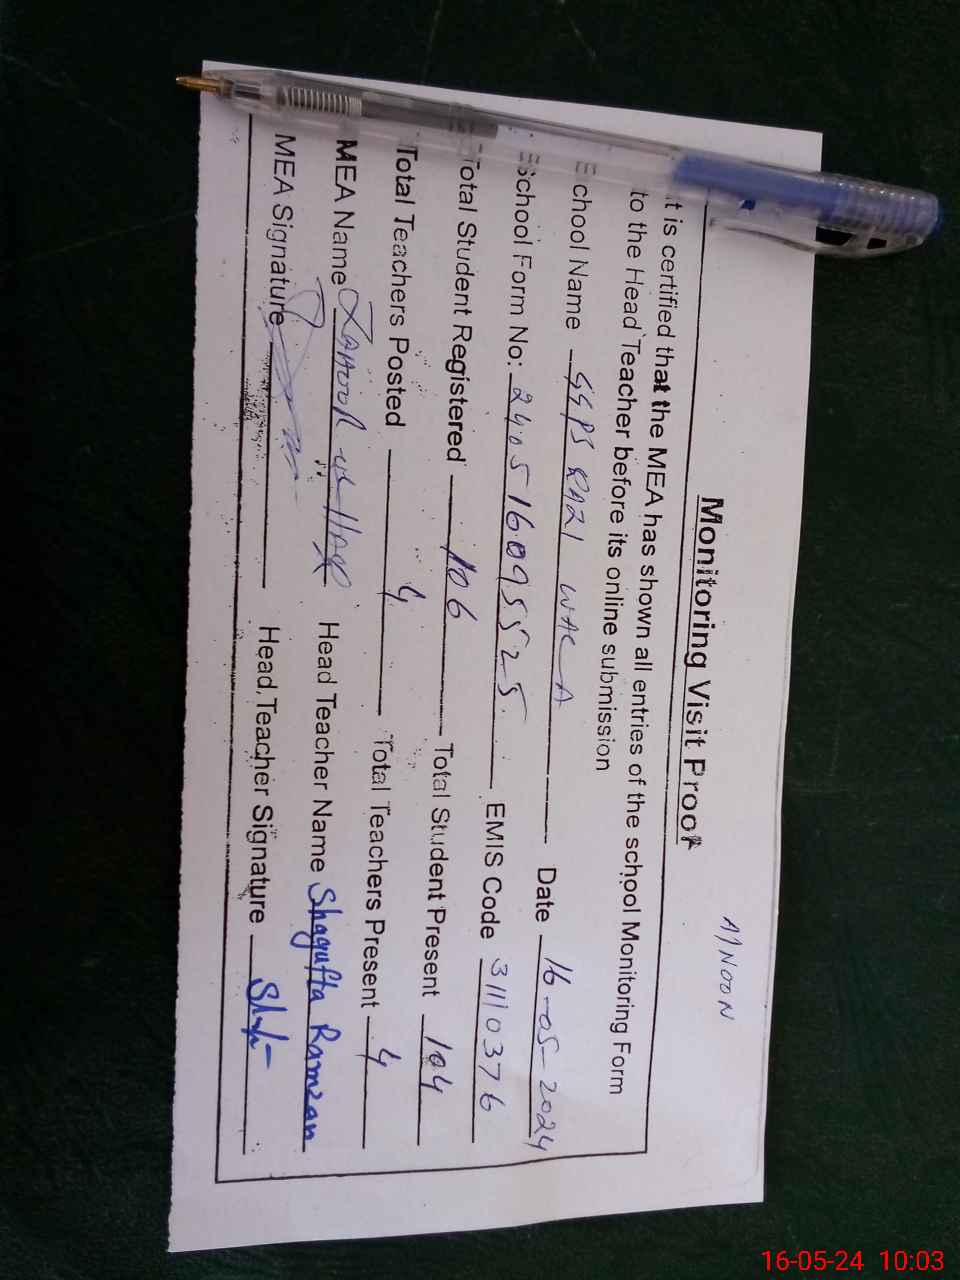 A/NOON
Monitoring Visit Proof
It is certified that the MEA has shown all entries of the school Monitoring Form
to the Head Teacher before its online submission
School Name GGPS RAZI WALA Date 16-05-2024
School Form No: 240516095525 EMIS Code 31110376
Total Student Registered 106 Total Student Present 104
Total Teachers Posted 4 Total Teachers Present 4
MEA Name ZAHOOR ul HAQ Head Teacher Name Shagufta Ramzan
MEA Signature Head Teacher Signature
16-05-24 10:03